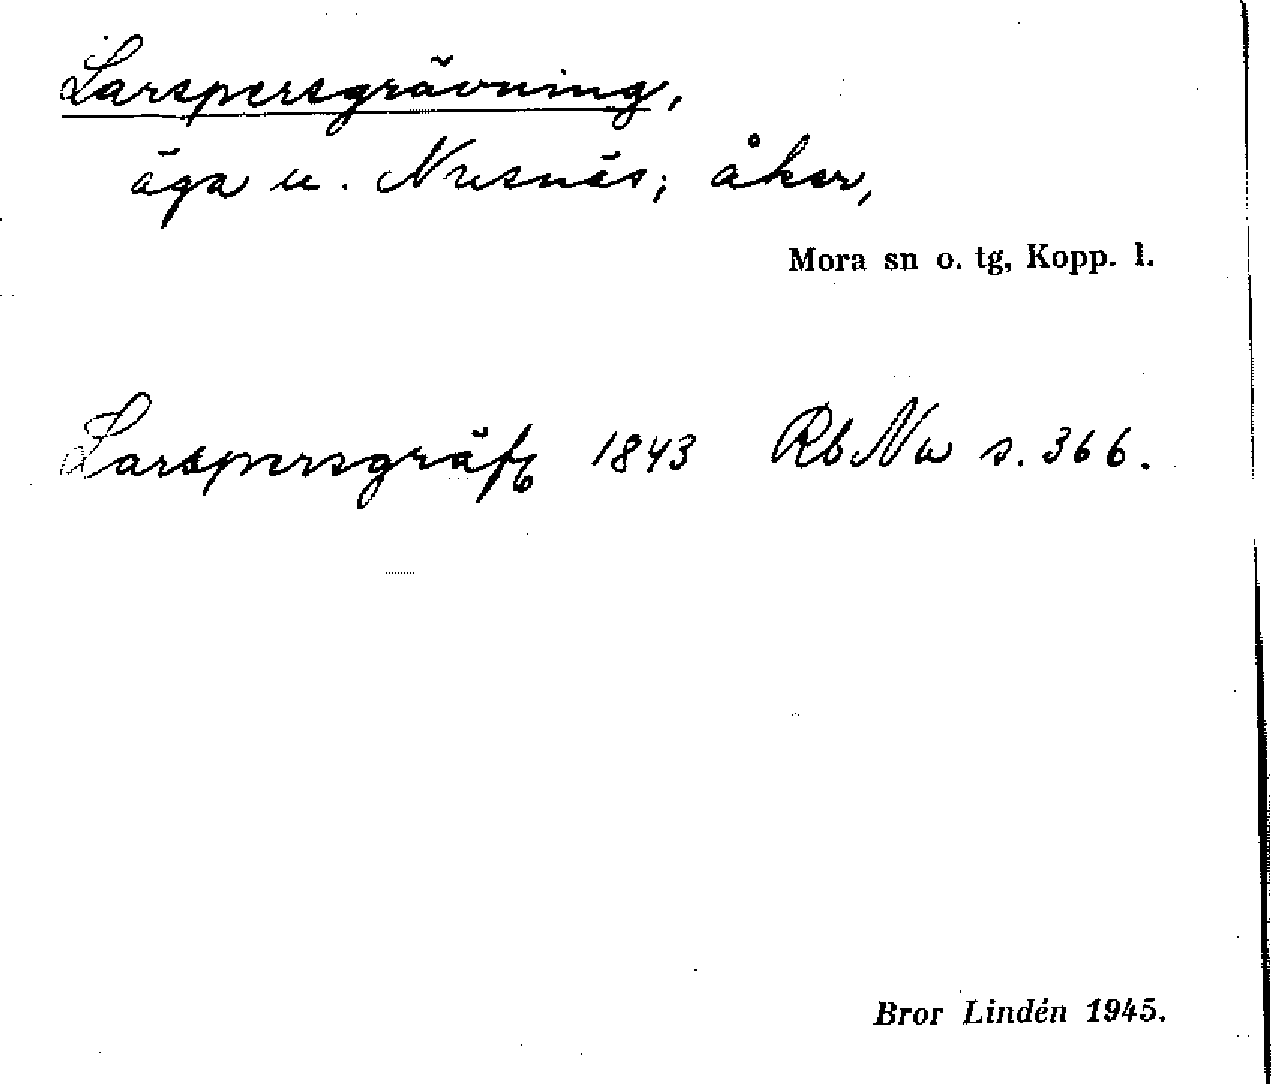 Larspersgrävning,
äga u. Nusnäs; åker,
Mora sn o. tg, Kopp. l.
Larspersgräfg 1843 RbNu s. 366.
Bror Lindén 1945.